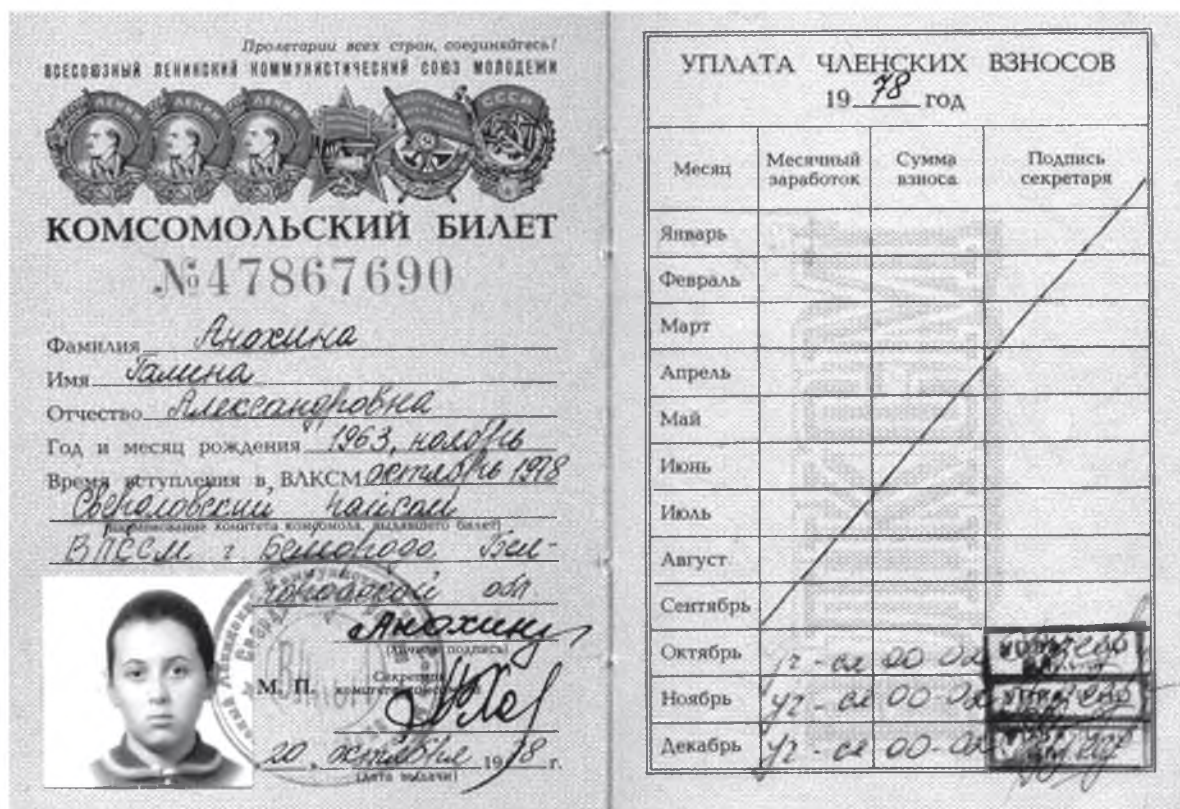 Пролетарии всех стран, соединяйтесь!
ВСЕСОЮЗНЫЙ ЛЕНИНСКИЙ КОММУНИСТИЧЕСКИЙ СОЮЗ МОЛОДЕЖИ
ЛЕНИН ЛЕНИН ЛЕНИН СССР
КОМСОМОЛЬСКИЙ БИЛЕТ
№47867690
Фамилия Анохина
Имя Галина
Отчество Александровна
Год и месяц рождения 1963, ноябрь
Время вступления в ВЛКСМ октябрь 1978
Свердловский райком
(наименование комитета комсомола, выдавшего билет)
ВЛКСМ г Белгорода Бел-
городской обл.
(личная подпись)
М. П. Секретарь
комитета комсомола
20 октября 1978 г.
(дата выдачи)
УПЛАТА ЧЛЕНСКИХ ВЗНОСОВ
1978 год
Месяц Месячный заработок Сумма взноса Подпись секретаря
Январь
Февраль
Март
Апрель
Май
Июнь
Июль
Август
Сентябрь
Октябрь уч-ся 00-02
Ноябрь уч-ся 00-02
Декабрь уч-ся 00-02